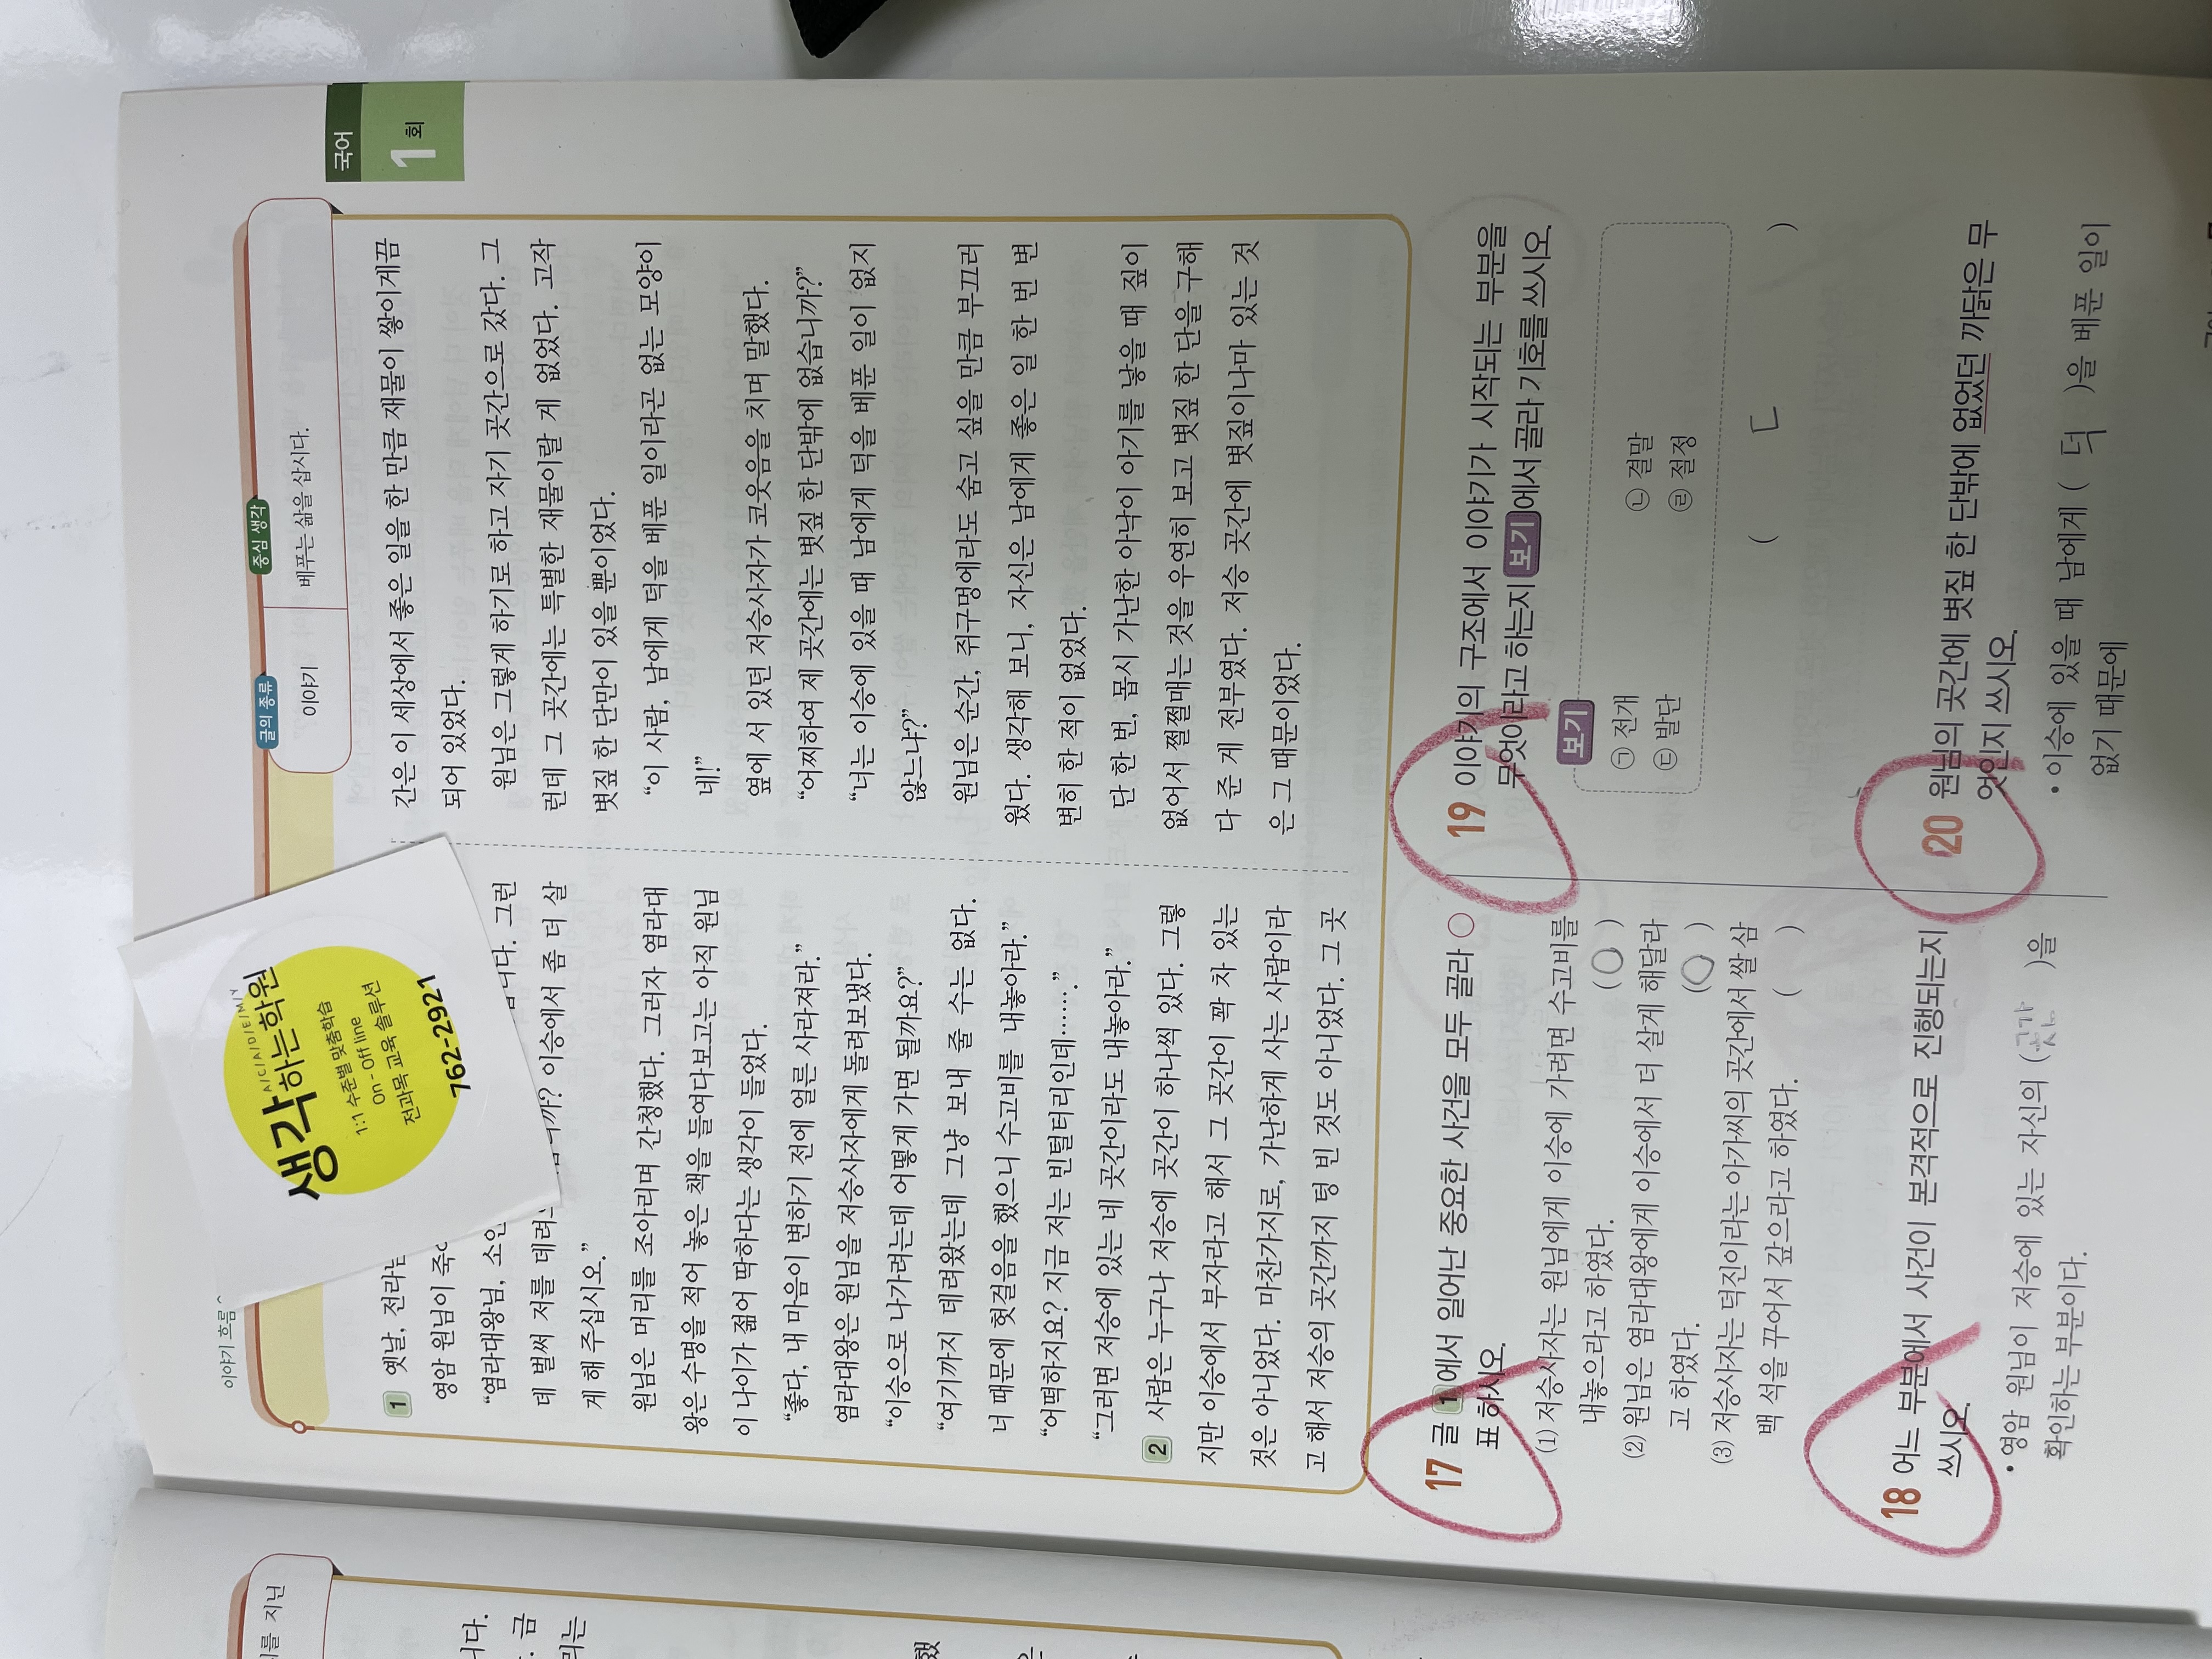 를 지닌
니다.
. 금
리는
했
은
이야기 흐름
글의 종류
이야기
중심 생각
베푸는 삶을 삽시다.
국어
1회
생각하는학원
A/C/A/D/E/M/Y
1:1 수준별 맞춤학습
on - off line
전과목 교육 솔루션
762-2921
1 옛날, 전라
영암 원님이 죽
“염라대왕님, 소인 니다. 그런
데 벌써 저를 데려 니까? 이승에서 좀 더 살
게 해 주십시오.”
원님은 머리를 조아리며 간청했다. 그러자 염라대
왕은 수명을 적어 놓은 책을 들여다보고는 아직 원님
이 나이가 젊어 딱하다는 생각이 들었다.
“좋다. 내 마음이 변하기 전에 얼른 사라져라.”
염라대왕은 원님을 저승사자에게 돌려보냈다.
“이승으로 나가려는데 어떻게 가면 될까요?”
“여기까지 데려왔는데 그냥 보내 줄 수는 없다.
너 때문에 헛걸음을 했으니 수고비를 내놓아라.”
“어떡하지요? 지금 저는 빈털터리인데…….”
“그러면 저승에 있는 네 곳간이라도 내놓아라.”
2 사람은 누구나 저승에 곳간이 하나씩 있다. 그렇
지만 이승에서 부자라고 해서 그 곳간이 꽉 차 있는
것은 아니었다. 마찬가지로, 가난하게 사는 사람이라
고 해서 저승의 곳간까지 텅 빈 것도 아니었다. 그 곳
간은 이 세상에서 좋은 일을 한 만큼 재물이 쌓이게끔
되어 있었다.
원님은 그렇게 하기로 하고 자기 곳간으로 갔다. 그
런데 그 곳간에는 특별한 재물이랄 게 없었다. 고작
볏짚 한 단만이 있을 뿐이었다.
“이 사람, 남에게 덕을 베푼 일이라곤 없는 모양이
네!”
옆에 서 있던 저승사자가 코웃음을 치며 말했다.
“어찌하여 제 곳간에는 볏짚 한 단밖에 없습니까?”
“너는 이승에 있을 때 남에게 덕을 베푼 일이 없지
않느냐?”
원님은 순간, 쥐구멍에라도 숨고 싶을 만큼 부끄러
웠다. 생각해 보니, 자신은 남에게 좋은 일 한 번 변
변히 한 적이 없었다.
단 한 번, 몹시 가난한 아낙이 아기를 낳을 때 짚이
없어서 쩔쩔매는 것을 우연히 보고 볏짚 한 단을 구해
다 준 게 전부였다. 저승 곳간에 볏짚이나마 있는 것
은 그 때문이었다.
17 글 1에서 일어난 중요한 사건을 모두 골라 ○
표 하시오.
(1) 저승사자는 원님에게 이승에 가려면 수고비를
내놓으라고 하였다. ( ○ )
(2) 원님은 염라대왕에게 이승에서 더 살게 해달라
고 하였다. ( ○ )
(3) 저승사자는 덕진이라는 아가씨의 곳간에서 쌀 삼
백 석을 꾸어서 갚으라고 하였다. ( )
18 어느 부분에서 사건이 본격적으로 진행되는지
쓰시오.
• 영암 원님이 저승에 있는 자신의 ( 곳간 )을
확인하는 부분이다.
19 이야기의 구조에서 이야기가 시작되는 부분을
무엇이라고 하는지 보기에서 골라 기호를 쓰시오.
보기
㉠ 전개 ㉡ 결말
㉢ 발단 ㉣ 절정
( ㄷ )
20 원님의 곳간에 볏짚 한 단밖에 없었던 까닭은 무
엇인지 쓰시오.
• 이승에 있을 때 남에게 ( 덕 )을 베푼 일이
없기 때문에